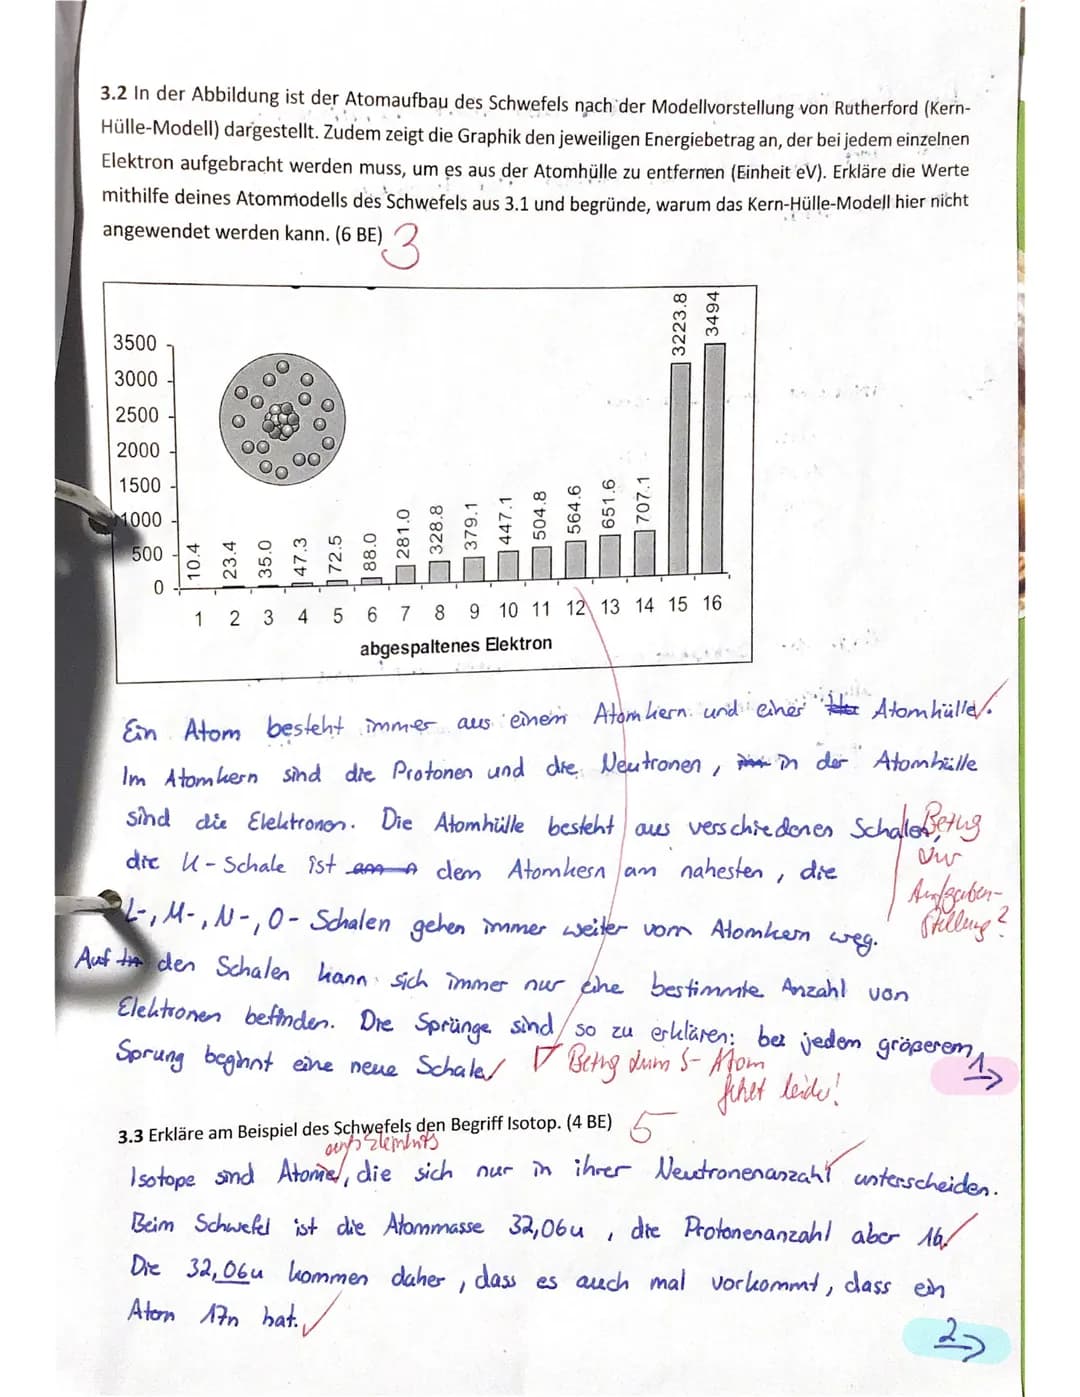 3.2 In der Abbildung ist der Atomaufbau des Schwefels nach der Modellvorstellung von Rutherford (Kern-
Hülle-Modell) dargestellt. Zudem zeigt die Graphik den jeweiligen Energiebetrag an, der bei jedem einzelnen
Elektron aufgebracht werden muss, um es aus der Atomhülle zu entfernen (Einheit eV). Erkläre die Werte
mithilfe deines Atommodells des Schwefels aus 3.1 und begründe, warum das Kern-Hülle-Modell hier nicht
angewendet werden kann. (6 BE) 3
3500
3000
2500
2000
1500
1000
500
0
10.4
23.4
35.0
47.3
72.5
88.0
281.0
328.8
379.1
447.1
504.8
564.6
651.6
707.1
3223.8
3494
1 2 3 4 5 6 7 8 9 10 11 12 13 14 15 16
abgespaltenes Elektron
Ein Atom besteht immer aus einem Atomkern und einer Atomhülle.
Im Atomkern sind die Protonen und die Neutronen, in der Atomhülle
sind die Elektronen. Die Atomhülle besteht aus verschiedenen Schalen,
die K-Schale ist dem Atomkern am nahesten, die
L-, M-, N-, O- Schalen gehen immer weiter vom Atomkern weg.
Bezug
zur
Aufgaben-
stellung?
Auf den Schalen kann sich immer nur eine bestimmte Anzahl von
Elektronen befinden. Die Sprünge sind so zu erklären: bei jedem größerem
Sprung beginnt eine neue Schale
Bezug zum S-Atom
fehlt leider!
1
3.3 Erkläre am Beispiel des Schwefels den Begriff Isotop. (4 BE) 5
Isotope sind Atome, die sich nur in ihrer Neutronenanzahl unterscheiden.
Beim Schwefel ist die Atommasse 32,06u, die Protonenanzahl aber 16.
Die 32,06u kommen daher, dass es auch mal vorkommt, dass ein
Atom 17n hat.
2